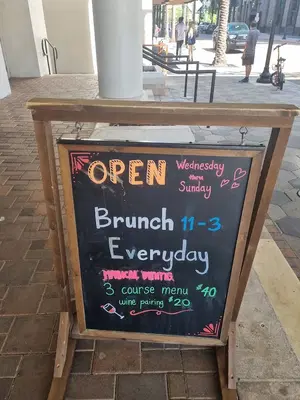 OPEN
Wednesday
thru
Sunday
Brunch 11-3
Everyday
3 course menu $40
wine pairing $20